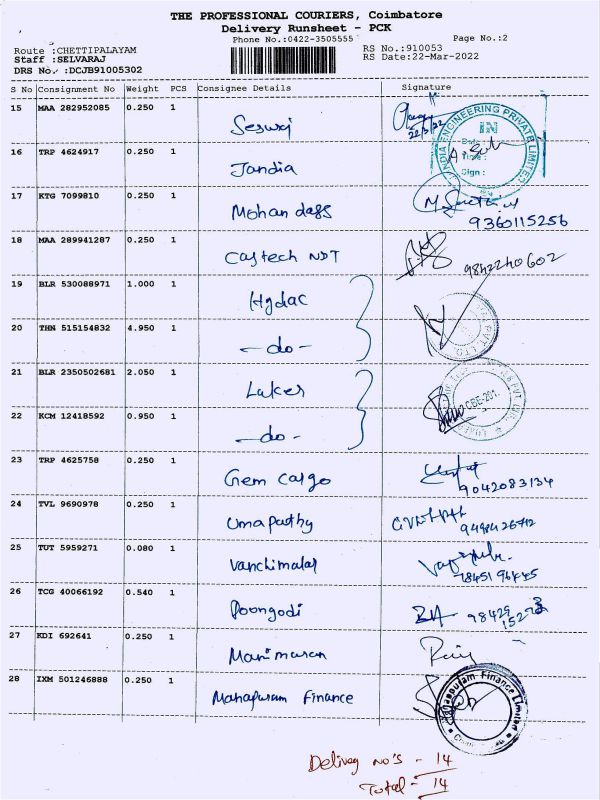 THE PROFESSIONAL COURIERS, Coimbatore
Delivery Runsheet - PCK
Phone No.:0422-3505555 Page No.:2
Route :CHETTIPALAYAM RS No.:910053
Staff :SELVARAJ RS Date:22-Mar-2022
DRS No. :DCJB91005302
S No Consignment No Weight PCS Consignee Details Signature
15 MAA 282952085 0.250 1
22/3/22
INDIA ENGINEERING PRIVATE LIMITED
IN
Date :
Time :
Sign :
16 TRP 4624917 0.250 1 Jandia
17 KTG 7099810 0.250 1 Mohan dass
9360115256
18 MAA 289941287 0.250 1 Castech NDT
9842240602
19 BLR 530088971 1.000 1 Hydac
20 THN 515154832 4.950 1 -do-
21 BLR 2350502681 2.050 1 Laker
CBE-201.
22 KCM 12418592 0.950 1 -do-
23 TRP 4625758 0.250 1 Gem cargo
9042083134
24 TVL 9690978 0.250 1 Umapathy
25 TUT 5959271 0.080 1 Vanchimalar
26 TCG 40066192 0.540 1 Poongodi
27 KDI 692641 0.250 1 Manimaran
28 IXM 501246888 0.250 1 Manapuram Finance
Finance Limited
Delivey no's - 14
Total - 14